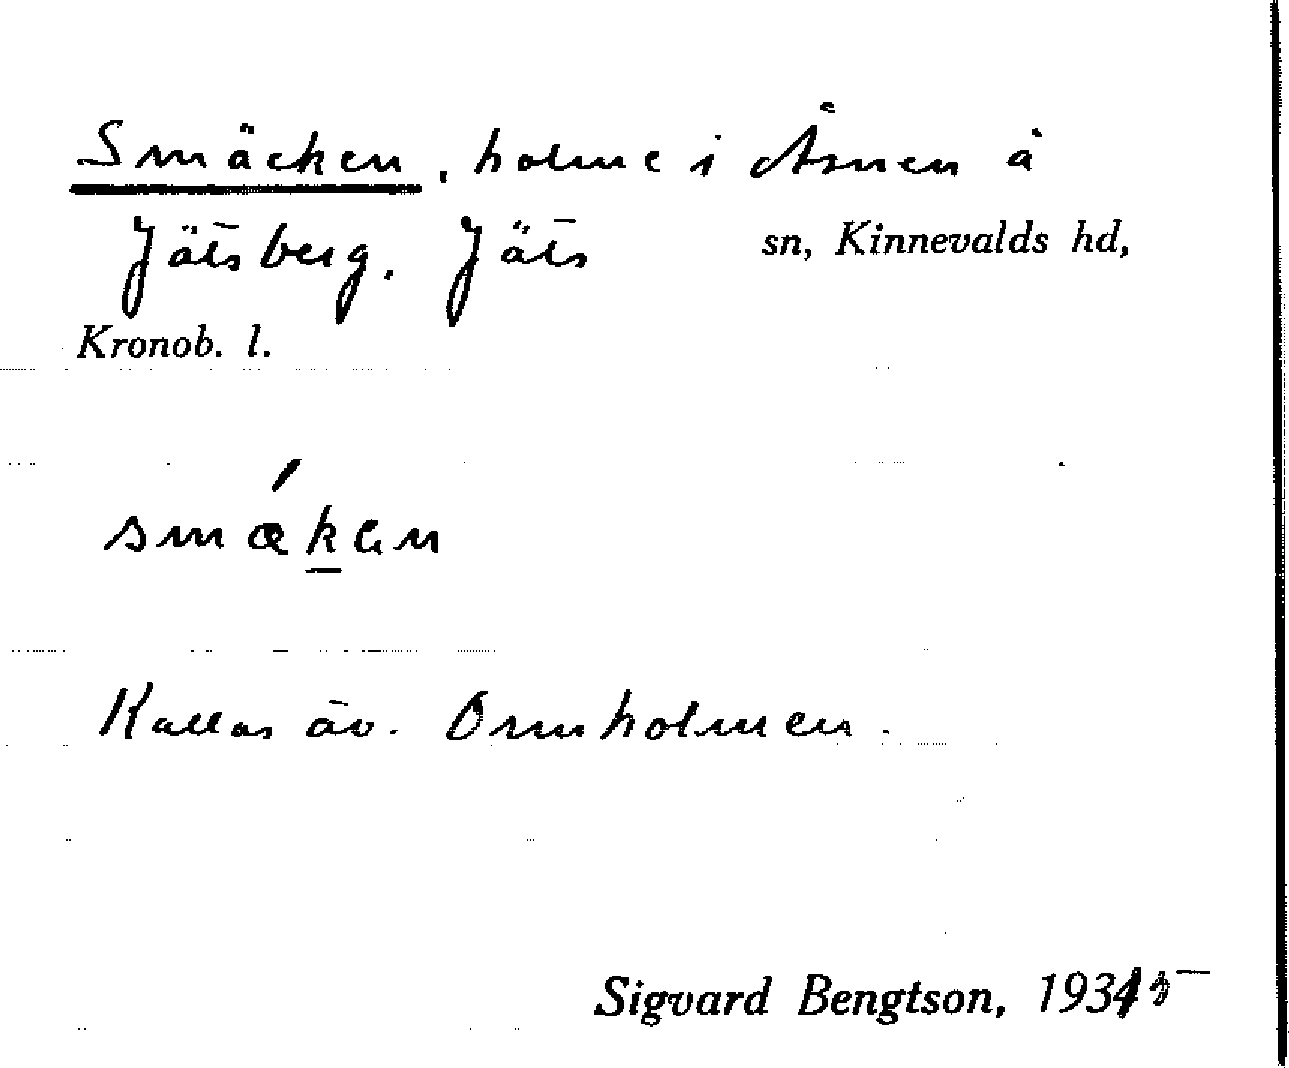 Smäcken, holme i Åsnen å
Jätsberg. Jäts sn, Kinnevalds hd,
Kronob. l.
smæken
Kallas äv. Ormholmen.
Sigvard Bengtson, 1935